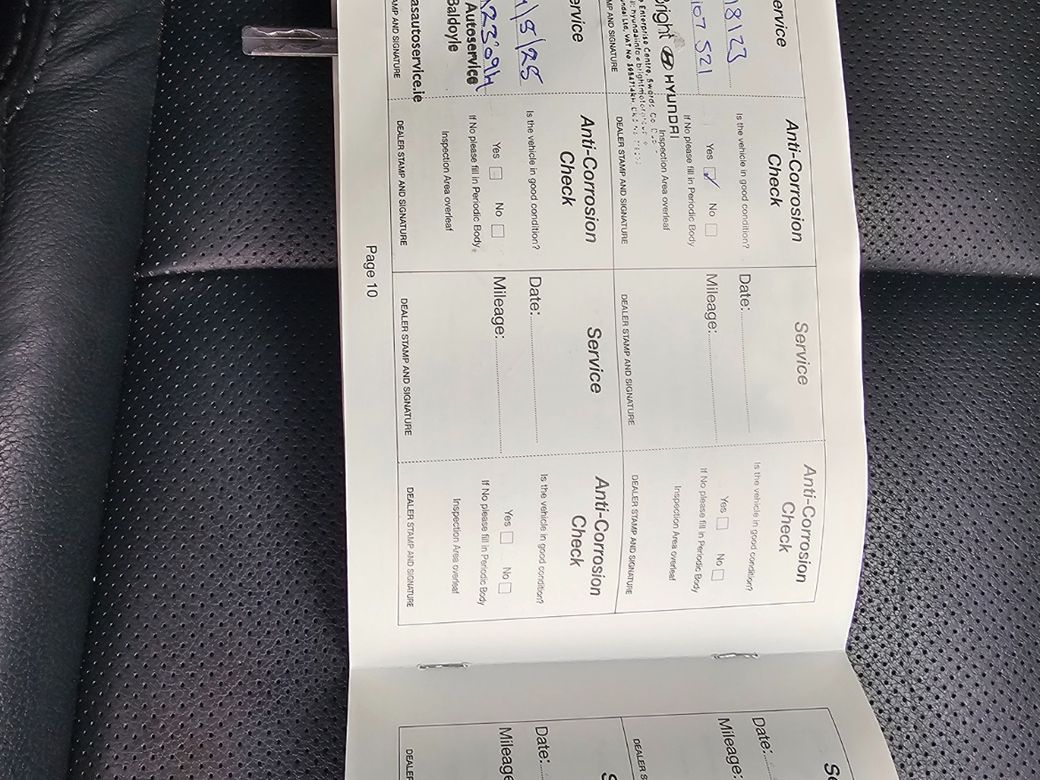 ervice
8/23
107 521
bright HYUNDAI
Enterprise Centre, Swords, Co.
MP AND SIGNATURE
Anti-Corrosion
Check
Is the vehicle in good condition?
Yes ✓ No
If No please fill in Periodic Body
Inspection Area overleaf
DEALER STAMP AND SIGNATURE
Service
Date:
Mileage:
DEALER STAMP AND SIGNATURE
Anti-Corrosion
Check
Is the vehicle in good condition?
Yes No
If No please fill in Periodic Body
Inspection Area overleaf
DEALER STAMP AND SIGNATURE
ervice
/8/25
Autoservice
Baldoyle
asautoservice.ie
AMP AND SIGNATURE
Anti-Corrosion
Check
Is the vehicle in good condition?
Yes No
If No please fill in Periodic Body
Inspection Area overleaf
DEALER STAMP AND SIGNATURE
Service
Date:
Mileage:
DEALER STAMP AND SIGNATURE
Anti-Corrosion
Check
Is the vehicle in good condition?
Yes No
If No please fill in Periodic Body
Inspection Area overleaf
DEALER STAMP AND SIGNATURE
Page 10
Se
Date:
Mileage:
DEALER S
S
Date:
Mileage
DEALER